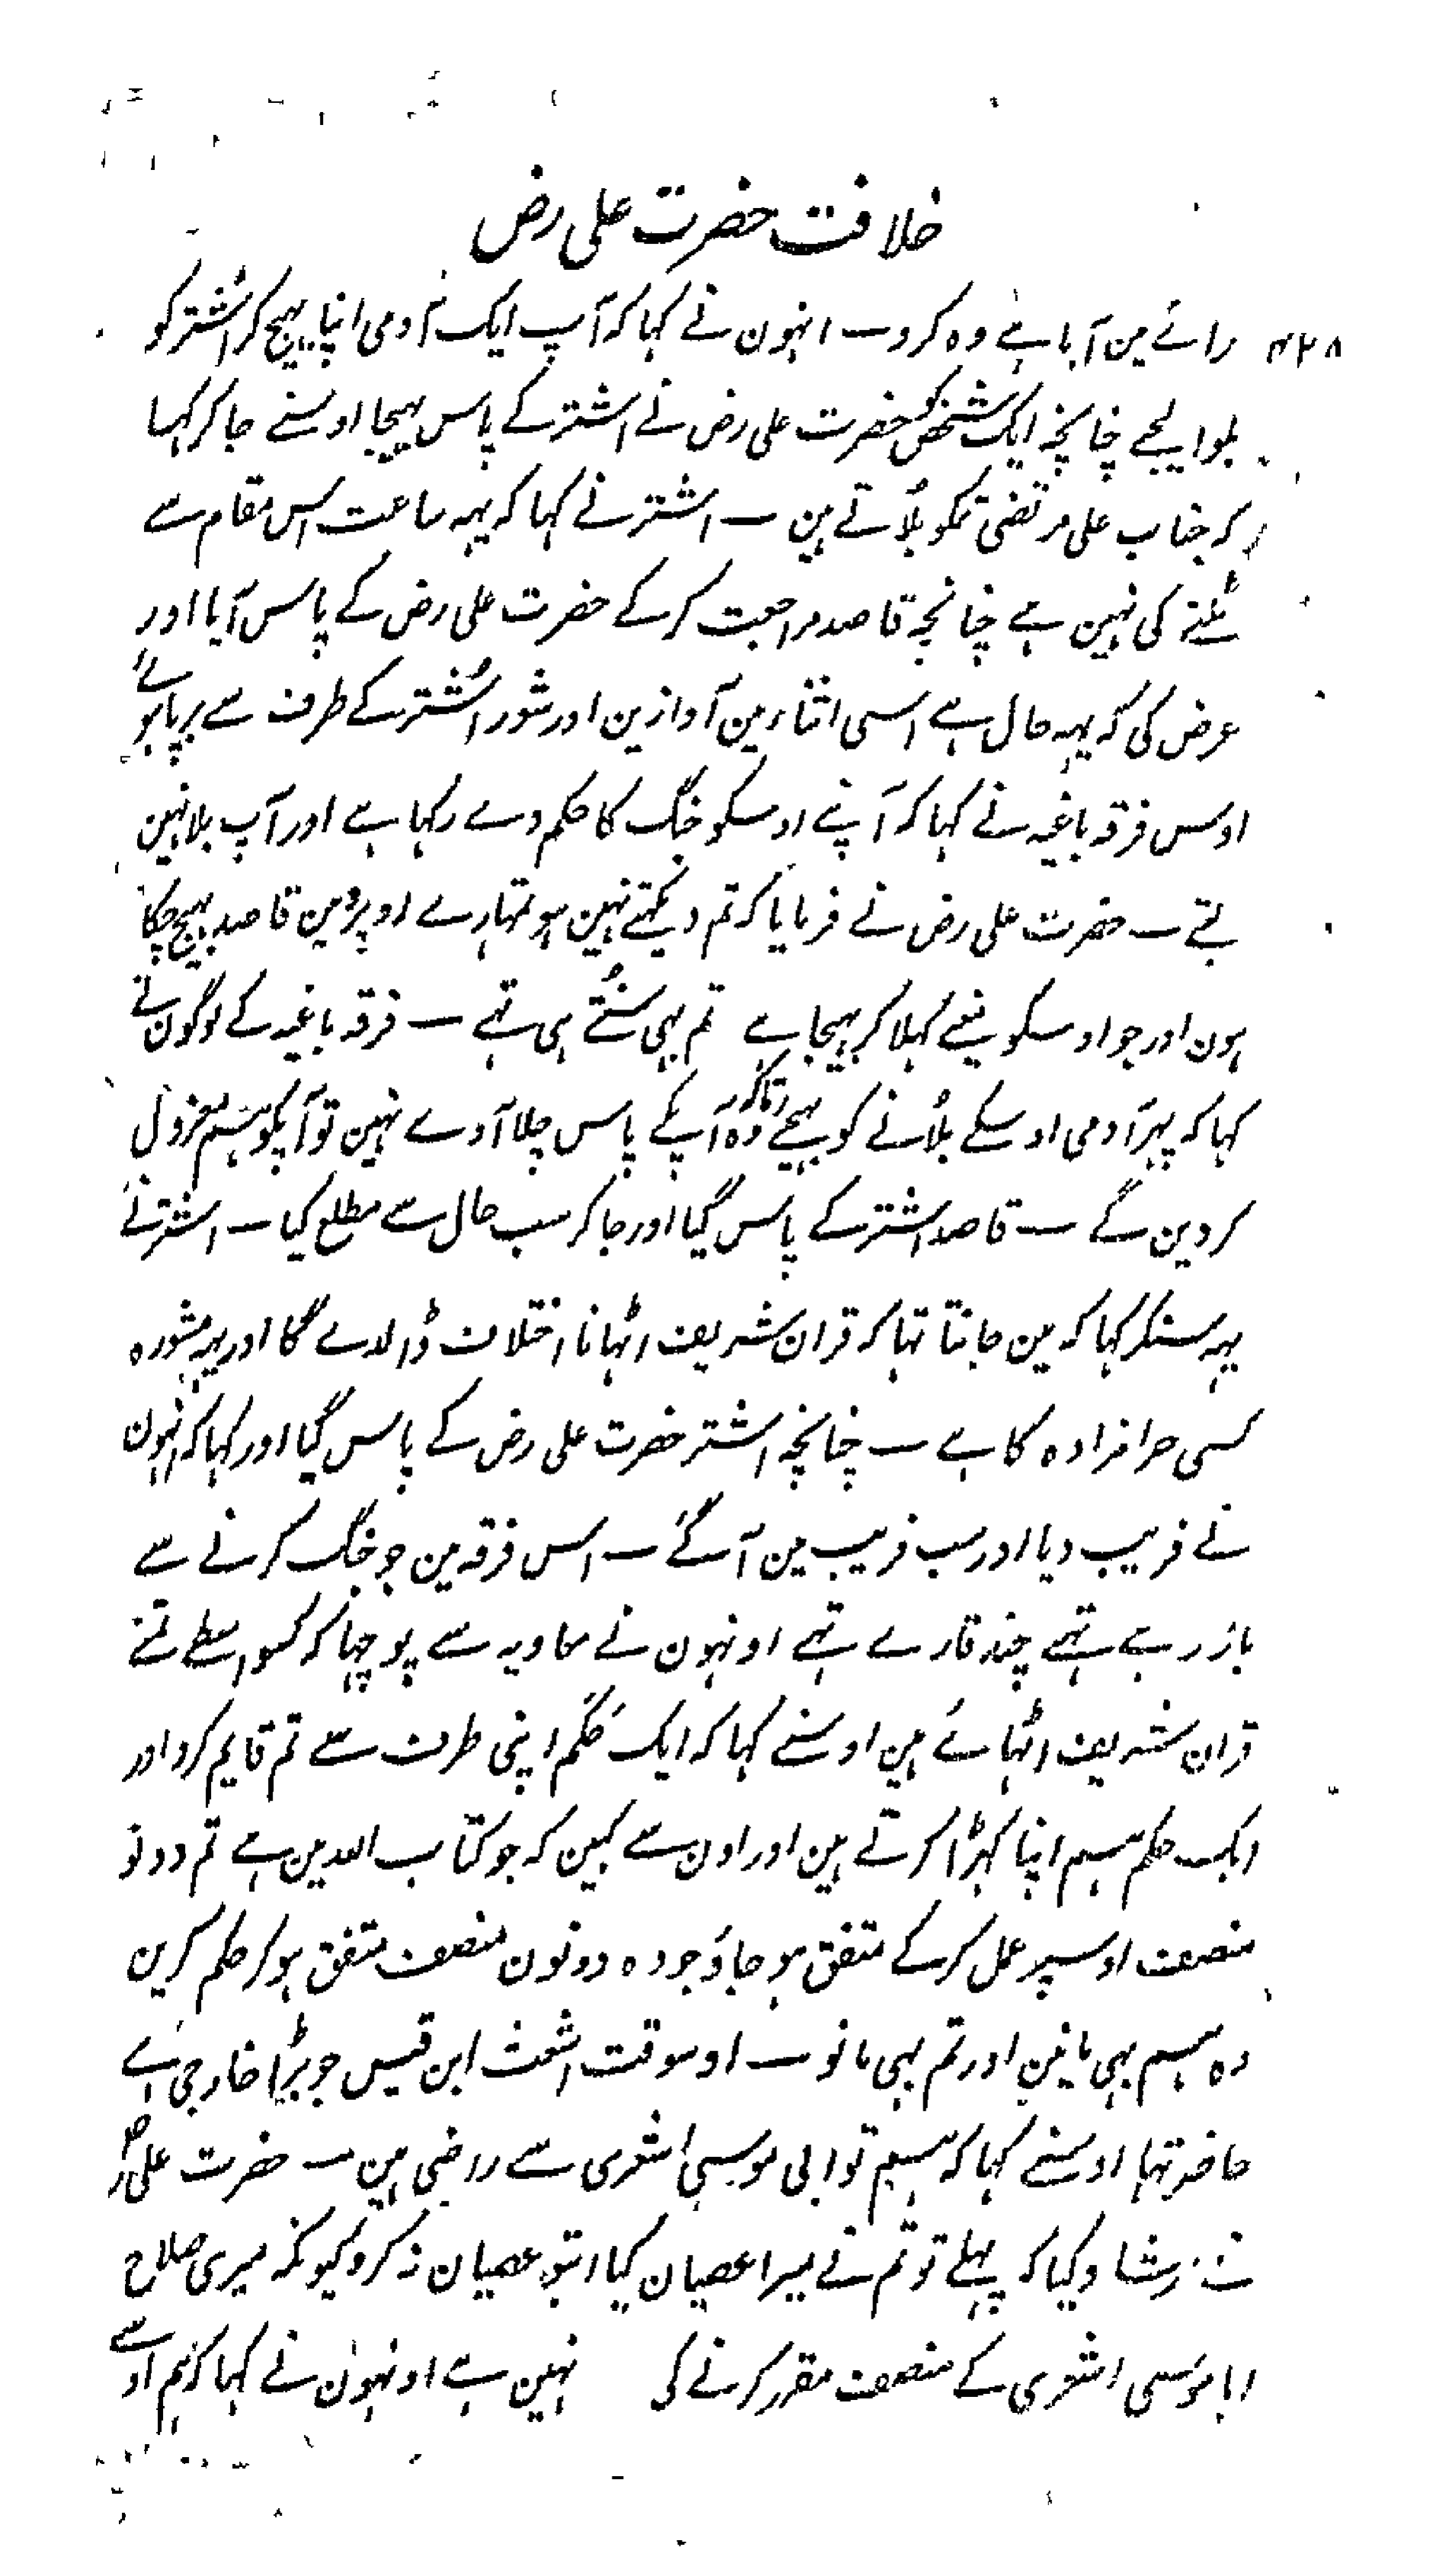 خلافت حضرت علی رض
۴۲۸ رائے مین آیا ہے وہ کرو ۔ انہون نے کہا کہ آپ ایک آدمی اپنا بہیج کر اشتر کو
بلوا لیجے چنانچہ ایک شخص کو حضرت علی رض نے اشتر کے پاس بہیجا اوسنے جا کر کہا
کہ جناب علی مرتضی تمکو بلاتے ہین ۔ اشتر نے کہا کہ یہہ ساعت اس مقام سے
ٹلنے کی نہین ہے چنانچہ قاصد مراجعت کرکے حضرت علی رض کے پاس آیا اور
عرض کی کہ یہہ حال ہے اسی اثناء مین آوازین اور شور اشتر کے طرف سے برپا ہوئے
اوس فرقہ باغیہ نے کہا کہ آپنے اوسکو جنگ کا حکم دے رکہا ہے اور آپ بلا نہین
تے ۔ حضرت علی رض نے فرمایا کہ تم دیکہتے نہین ہو تمہارے اوپر مین قاصد بہیج چکا
ہون اور جو اوسکو مینے کہلا کر بہیجا ہے تم بہی سنتے ہی تہے ۔ فرقہ باغیہ کے لوگون نے
کہا کہ پہر آدمی اوسکے بلانے کو بہیجے تاکہ وہ آپکے پاس چلا آوے نہین تو آپکو ہم معزول
کر دین گے ۔ قاصد اشتر کے پاس گیا اور جا کر سب حال سے مطلع کیا ۔ اشتر نے
یہہ سنکر کہا کہ مین جانتا تہا کہ قران شریف اٹہانا اختلاف ڈالدے گا اور یہہ مشورہ
کسی حرامزادہ کا ہے ۔ چنانچہ اشتر حضرت علی رض کے پاس گیا اور کہا کہ انہون
نے فریب دیا اور سب فریب مین آ گئے ۔ اس فرقہ مین جو جنگ کرنے سے
باز رہے تہے چند قارے تہے اونہون نے معاویہ سے پوچہا کہ کسواسطے تمنے
قران شریف اٹہائے ہین اوسنے کہا کہ ایک حَکَم اپنی طرف سے تم قایم کرو اور
ایک حکم ہم اپنا کہڑا کرتے ہین اور اون سے کہین کہ جو کتاب اللہ مین ہے تم دونو
منصف اوسپر عمل کرکے متفق ہو جاؤ جو وہ دونون منصف متفق ہو کر حکم کرین
وہ ہم بہی مانین اور تم بہی مانو ۔ اوسوقت اشعث ابن قیس جو بڑا خارجی ہے
حاضر تہا اوسنے کہا کہ ہم تو ابی موسی اشعری سے راضی ہین ۔ حضرت علی رض
نے ارشاد کیا کہ پہلے تو تم نے میرا عصیان کیا ابتو عصیان نہ کرو کیونکہ میری صلاح
ابا موسی اشعری کے منصف مقرر کرنے کی نہین ہے اونہون نے کہا کہ ہم اوسے